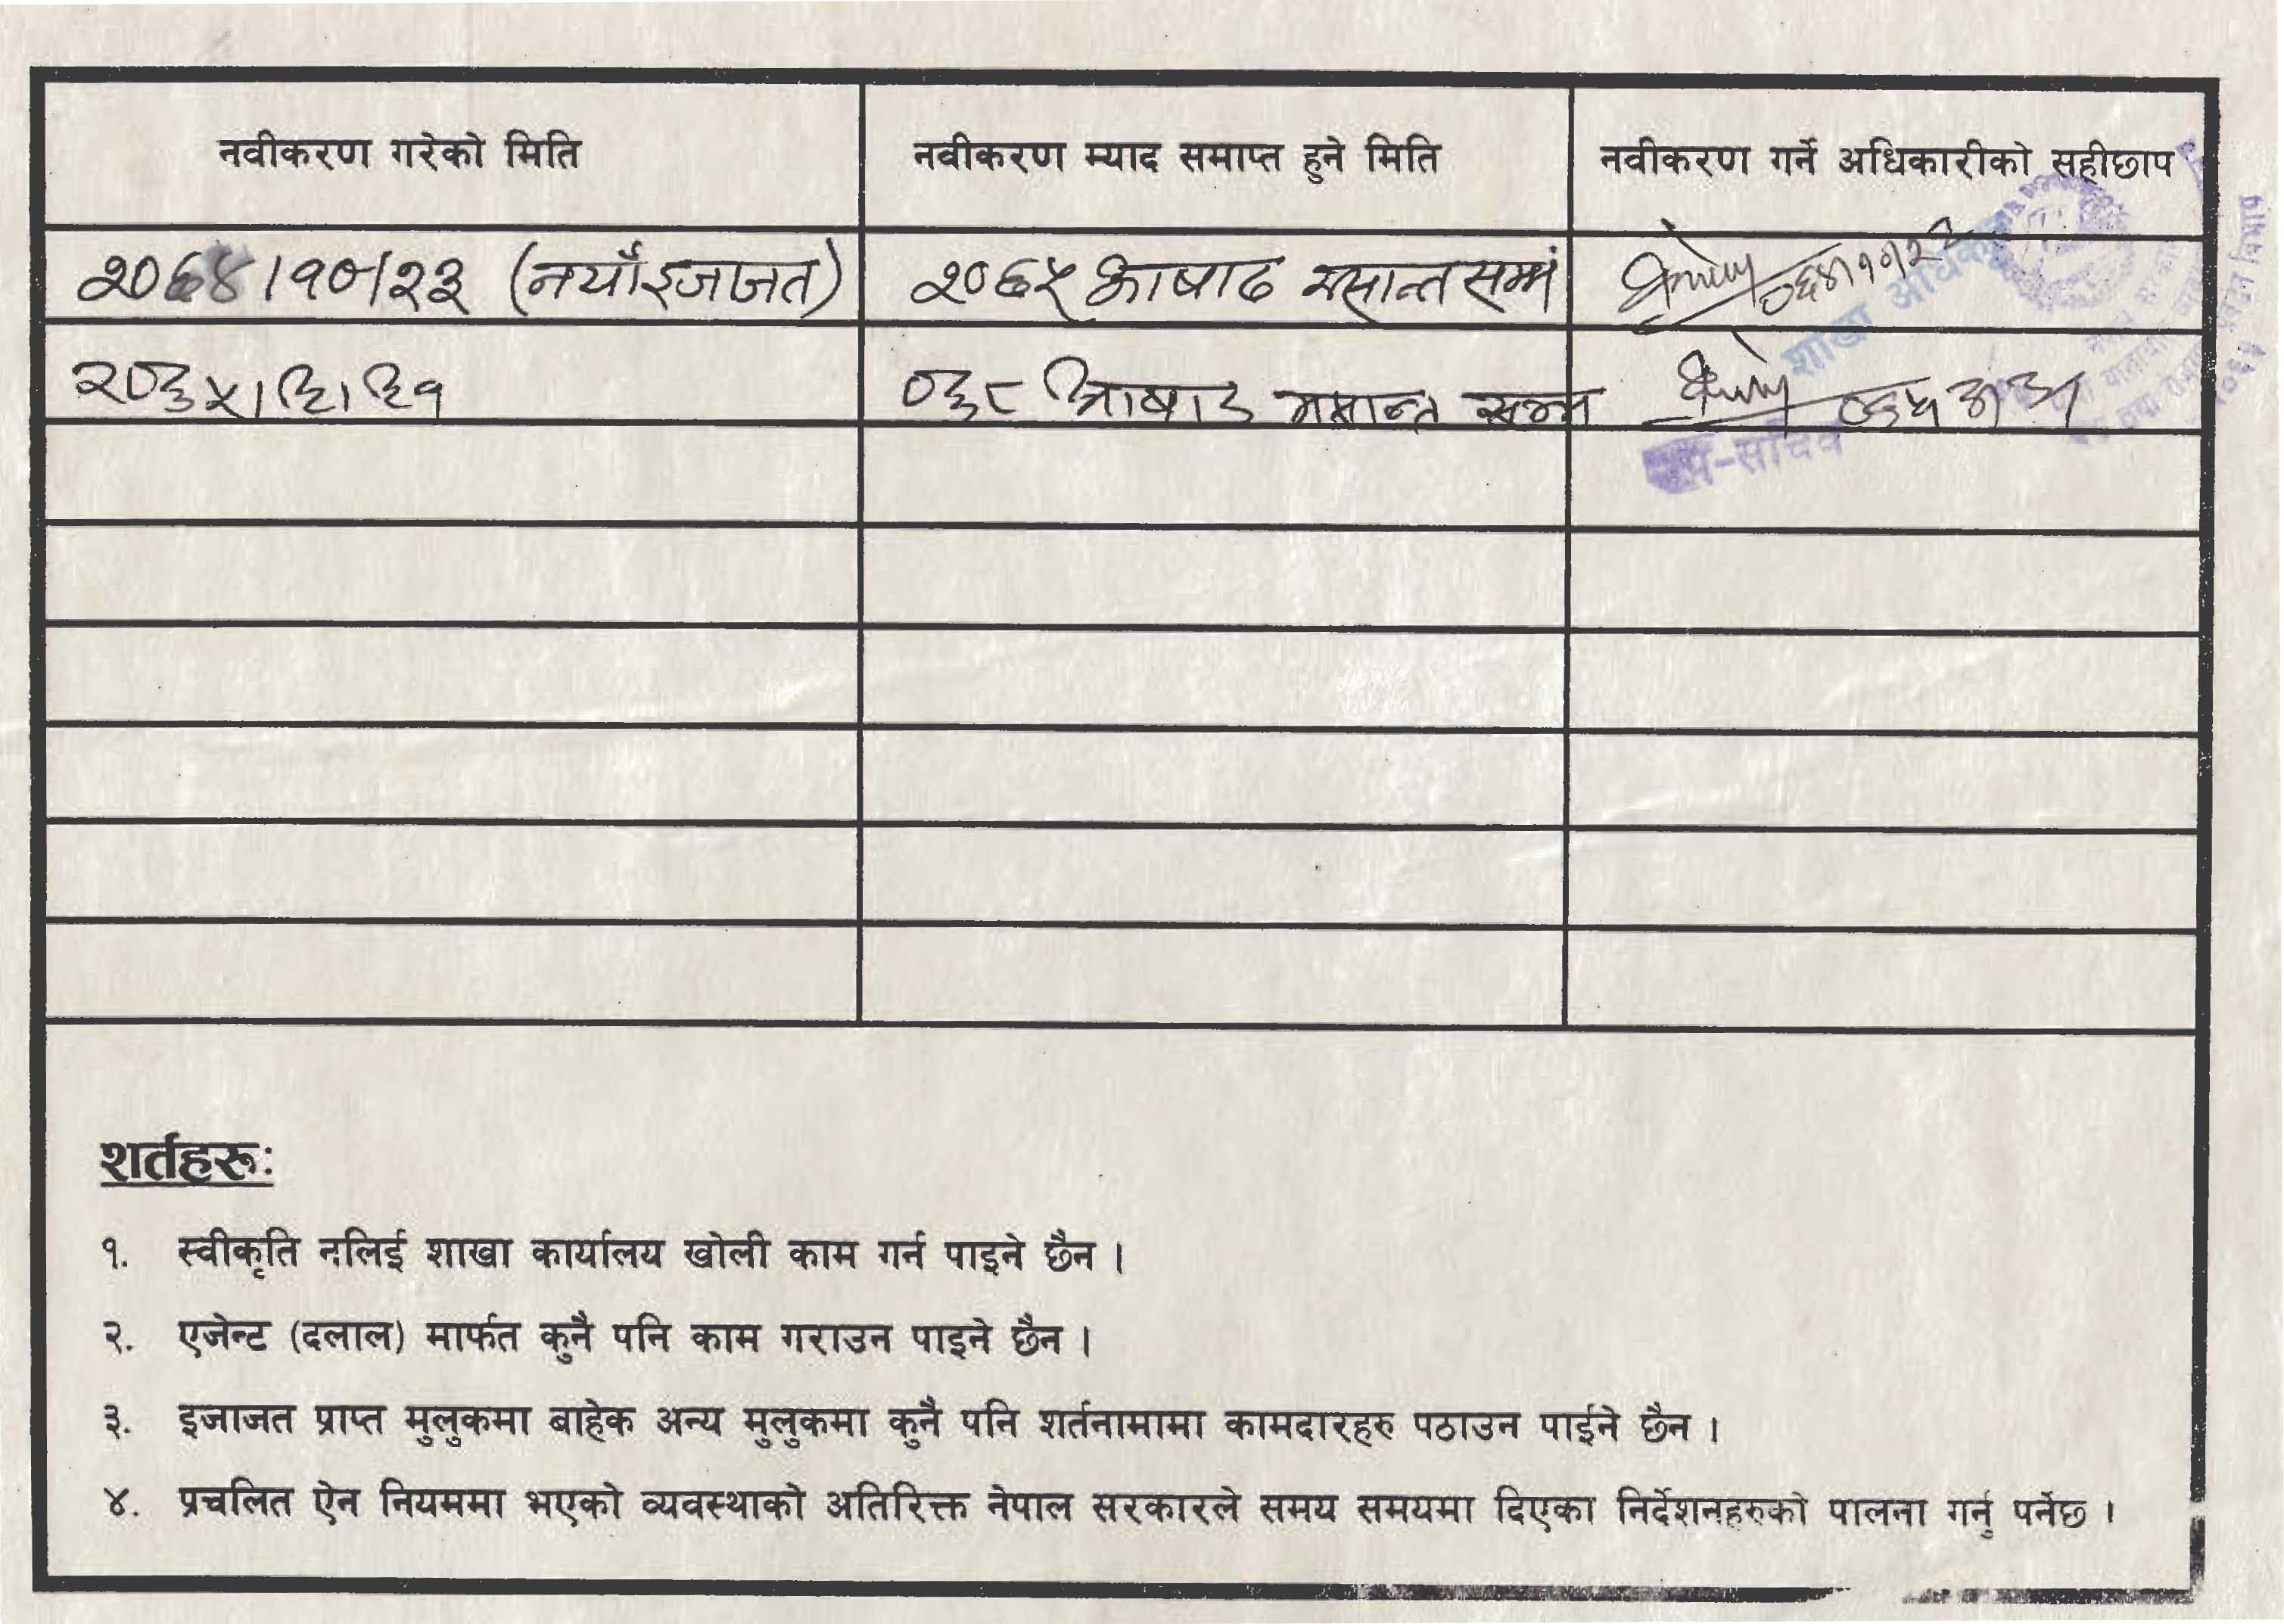 नवीकरण गरेको मिति नवीकरण म्याद समाप्त हुने मिति नवीकरण गर्ने अधिकारीको सहीछाप
२०६४।१०।२३ (नयाँ इजाजत) २०६५ आषाढ मसान्त सम्म
२०६५।३।३१ ०६८ आषाढ मसान्त सम्म
शाखा अधिकृत
उप-सचिव
शर्तहरू:
१. स्वीकृति नलिई शाखा कार्यालय खोली काम गर्न पाइने छैन ।
२. एजेन्ट (दलाल) मार्फत कुनै पनि काम गराउन पाइने छैन ।
३. इजाजत प्राप्त मुलुकमा बाहेक अन्य मुलुकमा कुनै पनि शर्तनामामा कामदारहरु पठाउन पाईने छैन ।
४. प्रचलित ऐन नियममा भएको व्यवस्थाको अतिरिक्त नेपाल सरकारले समय समयमा दिएका निर्देशनहरुको पालना गर्नु पर्नेछ ।